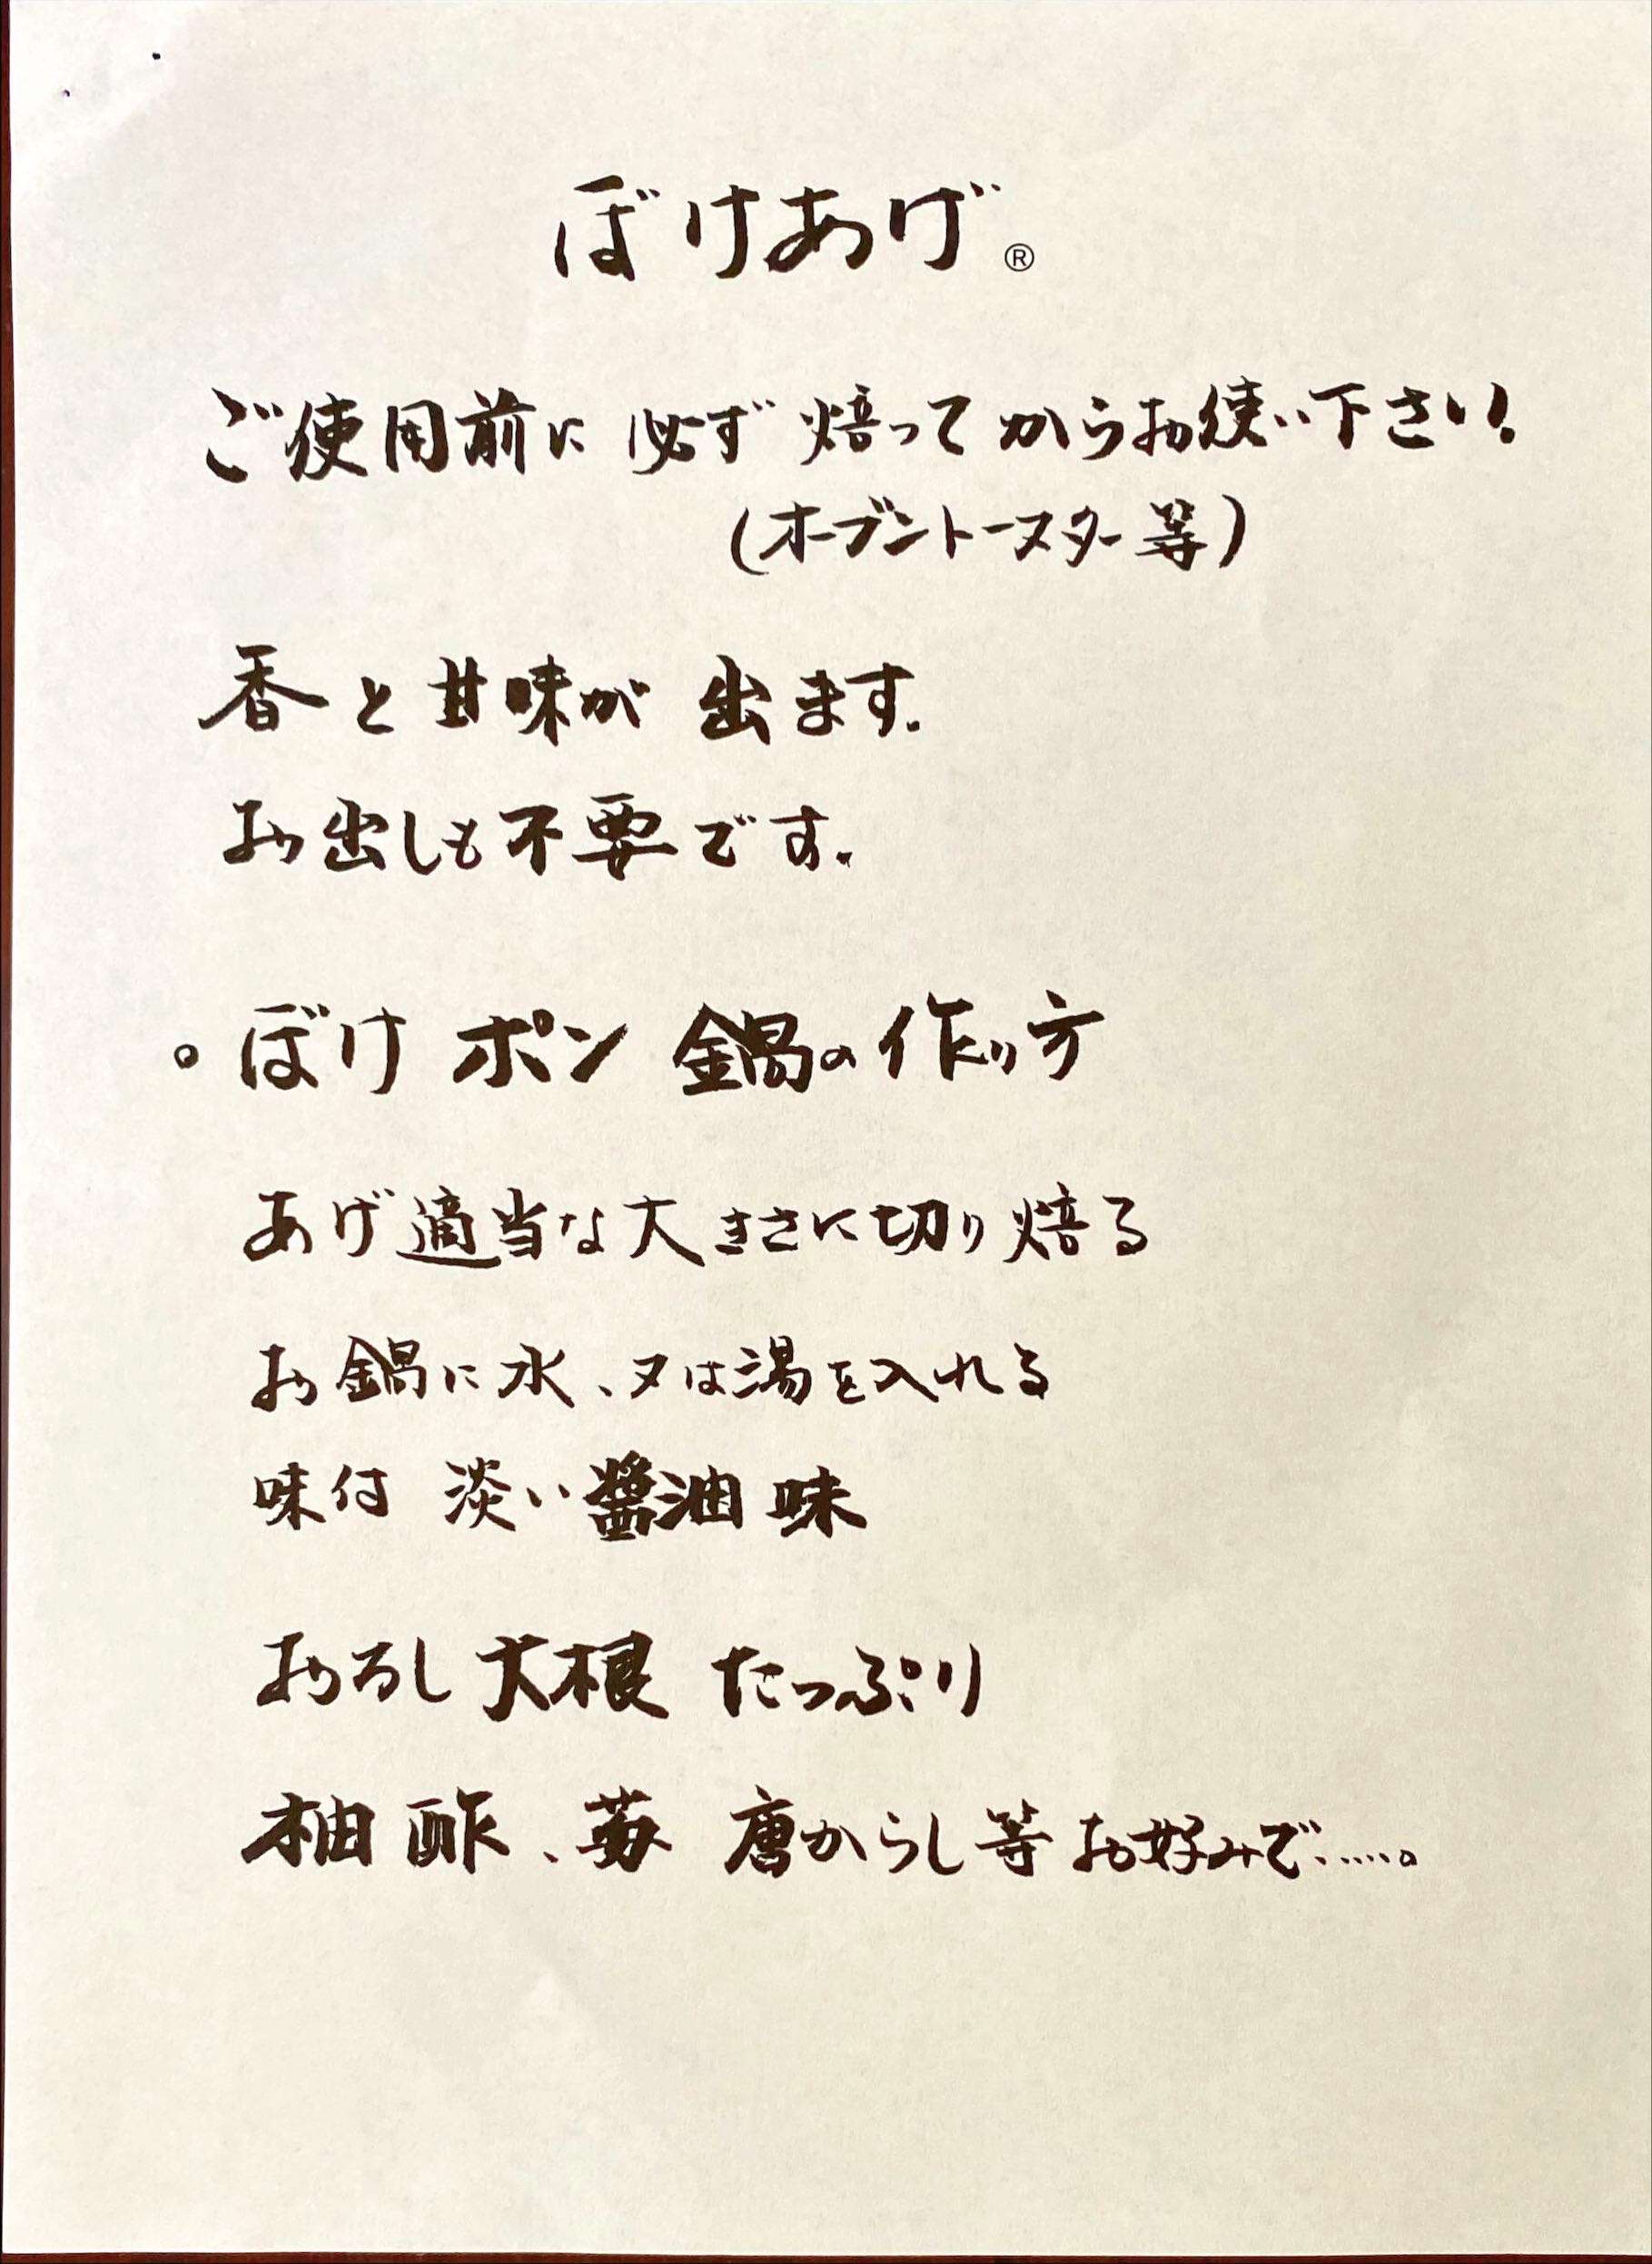 ぼけあげ®
ご使用前に必ず焙ってからお使い下さい!
(オーブントースター等)
香と甘味が出ます.
お出しも不要です.
○ ぼけポン鍋の作り方
あげ適当な大きさに切り焙る
お鍋に水、又は湯を入れる
味付 淡い醤油味
おろし大根 たっぷり
柚酢、 唐からし等お好みで……。